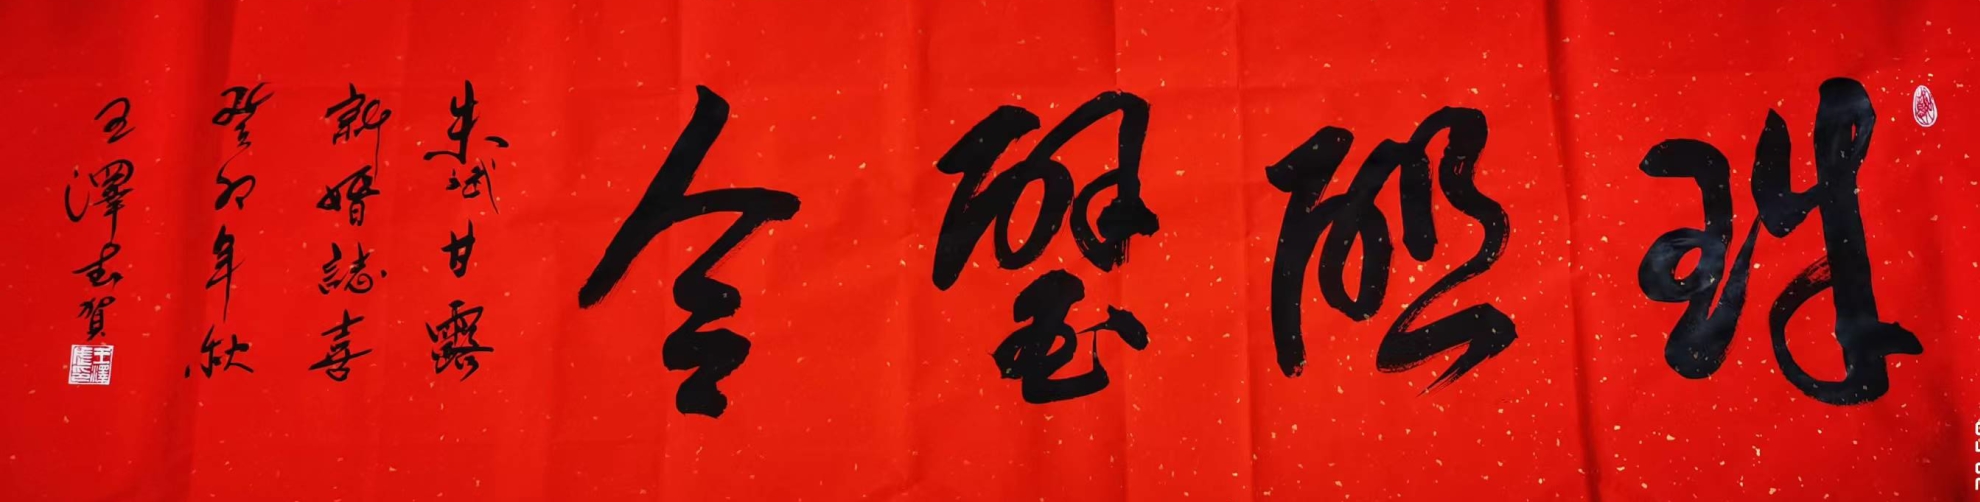 珠聯璧合
朱斌甘露
新婚誌喜
癸卯年秋
王澤賀